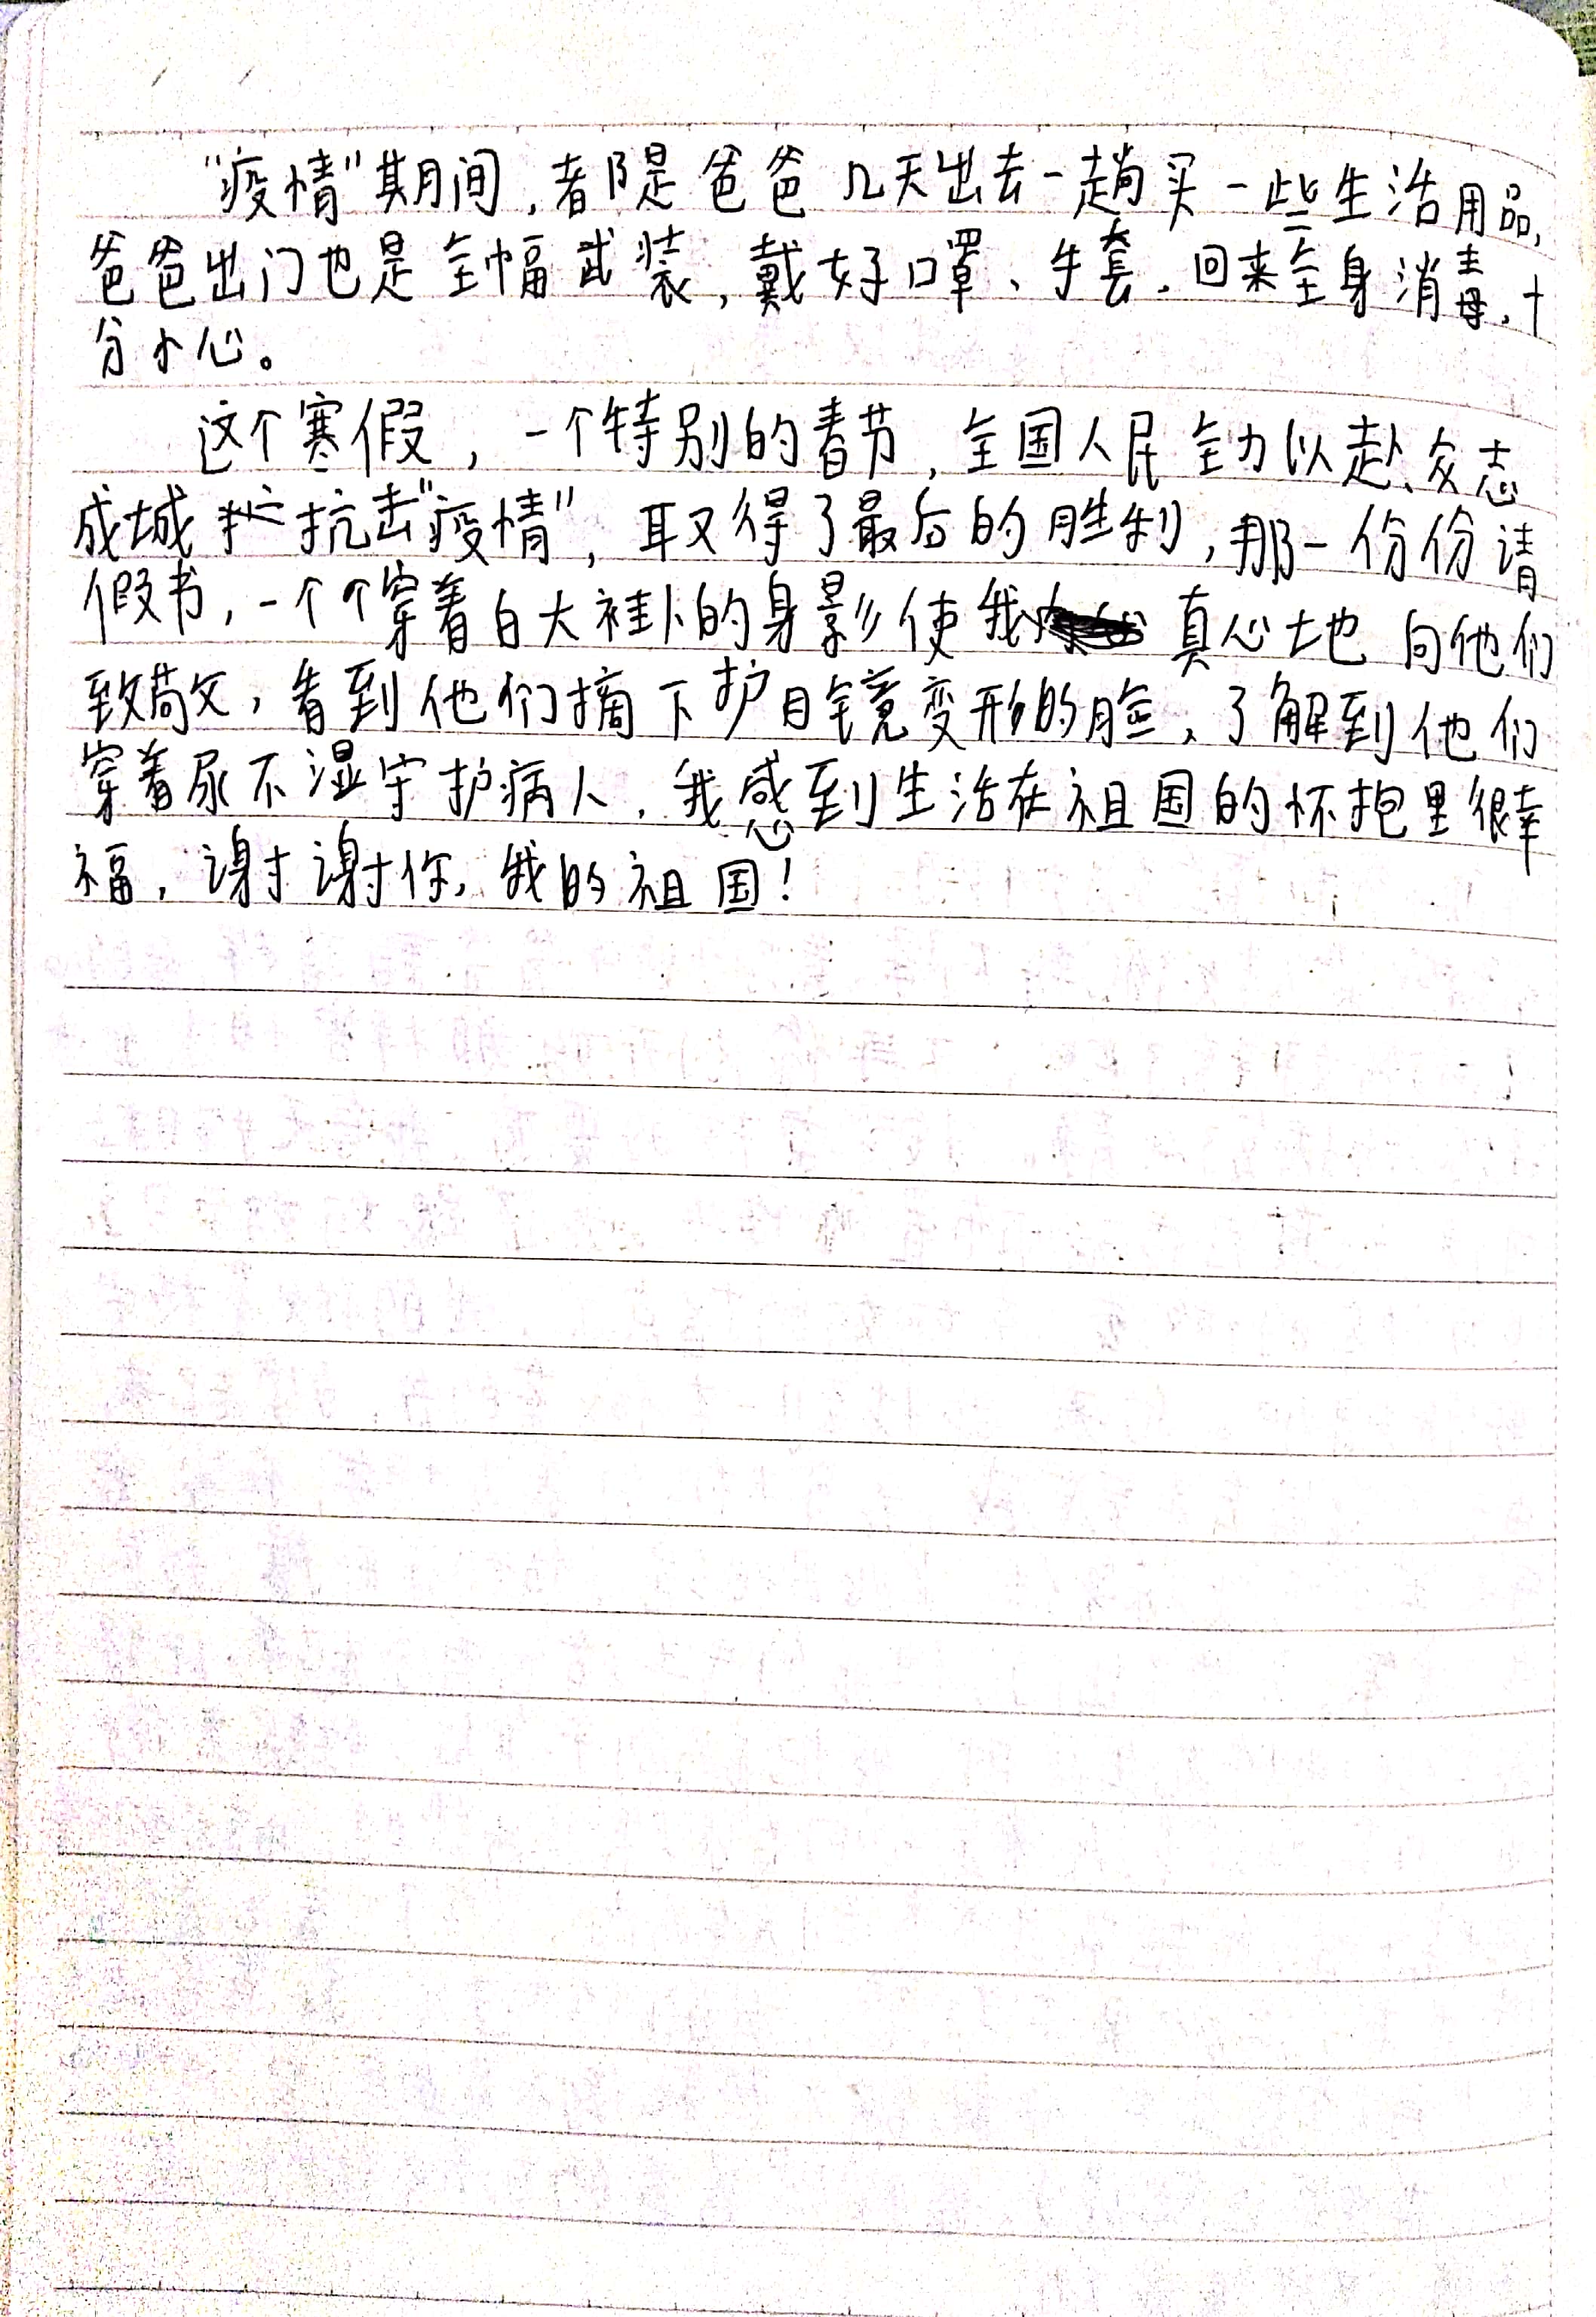 “疫情”期间,都是爸爸几天出去一趟买一些生活用品,
爸爸出门也是全幅武装,戴好口罩、手套,回来全身消毒,十
分小心。
这个寒假,一个特别的春节,全国人民全力以赴、众志
成城抗击“疫情”,取得了最后的胜利,那一份份请
假书,一个个穿着白大褂的身影使我真心地向他们
致敬,看到他们摘下护目镜变形的脸,了解到他们
穿着尿不湿守护病人,我感到生活在祖国的怀抱里很幸
福,谢谢你,我的祖国!